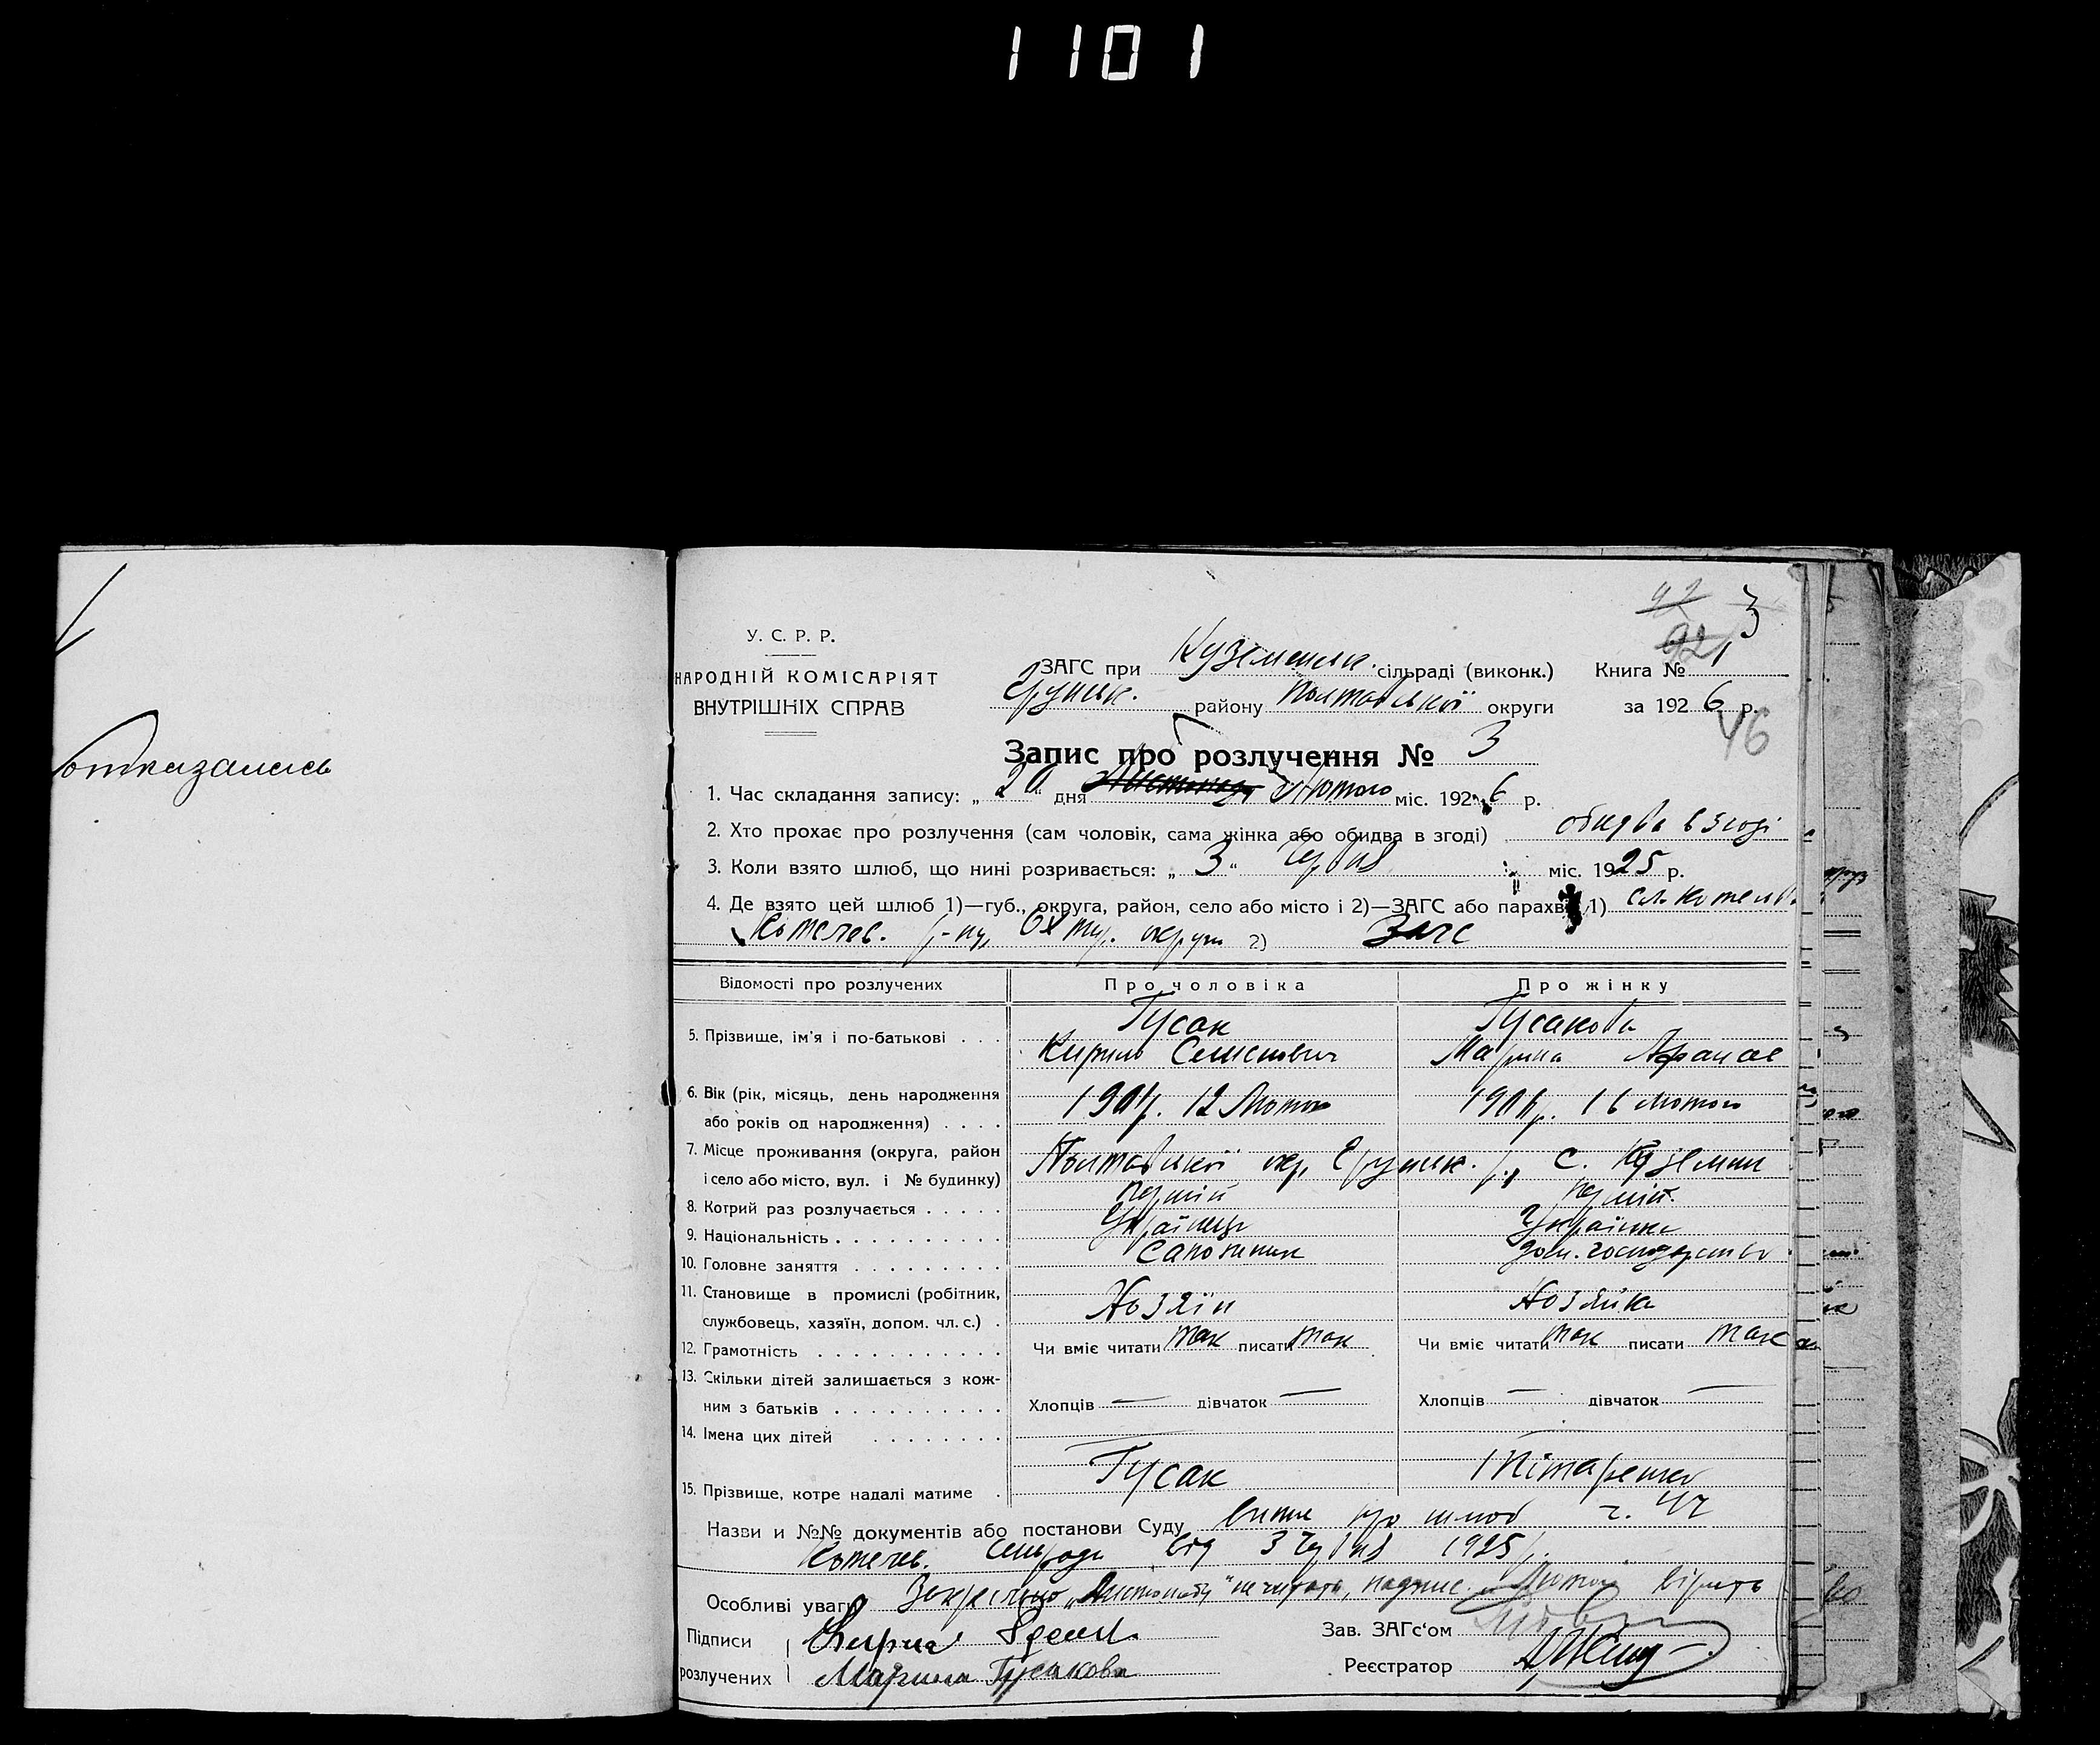 1101
отказалась
92
3
92
У. С. Р. Р.
НАРОДНІЙ КОМІСАРІЯТ
ВНУТРІШНІХ СПРАВ
ЗАГС при Куземенск. сільраді (виконк.) Книга № 1
Грунськ. району Полтавської округи за 1926 р.
46
Запис про розлучення № 3
1. Час складання запису: „ 20 “ дня Листопаду Лютого міс. 1926 р.
2. Хто прохає про розлучення (сам чоловік, сама жінка або обидва в згоді) обидва в згоді
3. Коли взято шлюб, що нині розривається: „ 3 “ Червня міс. 1925 р.
4. Де взято цей шлюб 1)—губ., округа, район, село або місто і 2)—ЗАГС або парахвія 1) сл. Котельв.
Котелев. р-ну, Охтир. округи 2) Загс
Відомості про розлучених Про чоловіка Про жінку
5. Прізвище, ім'я і по-батькові . . . Гусак Гусакова
Кирило Семенович Марина Афанас
6. Вік (рік, місяць, день народження
або років од народження) . . . . 12 Лютого 16 Лютого
7. Місце проживання (округа, район
і село або місто, вул. і № будинку) Полтавської окр. Грунськ. р., с. Куземин
8. Котрий раз розлучається . . . . . перший перший
9. Національність . . . . . . . . . . Українець Українка
10. Головне заняття . . . . . . . . . Сапожник дом. господарство
11. Становище в промислі (робітник,
службовець, хазяїн, допом. чл. с.) . Хозяїн Хозяйка
12. Грамотність . . . . . . . . . . . Чи вміє читати так писати так Чи вміє читати так писати так
13. Скільки дітей залишається з кож-
ним з батьків . . . . . . . . . . Хлопців — дівчаток — Хлопців — дівчаток —
14. Імена цих дітей . . . . . . . . — —
15. Прізвище, котре надалі матиме . Гусак
Назви и №№ документів або постанови Суду витяг про шлюб ч. 47
Котелев. Сельради від 3 Червня 1925 р.
Особливі уваги Закреслено „Листопаду“ не читати, надпис. „Лютого“ вірить
Підписи Кирило
розлучених Марина Гусакова
Зав. ЗАГс‘ом
Реєстратор